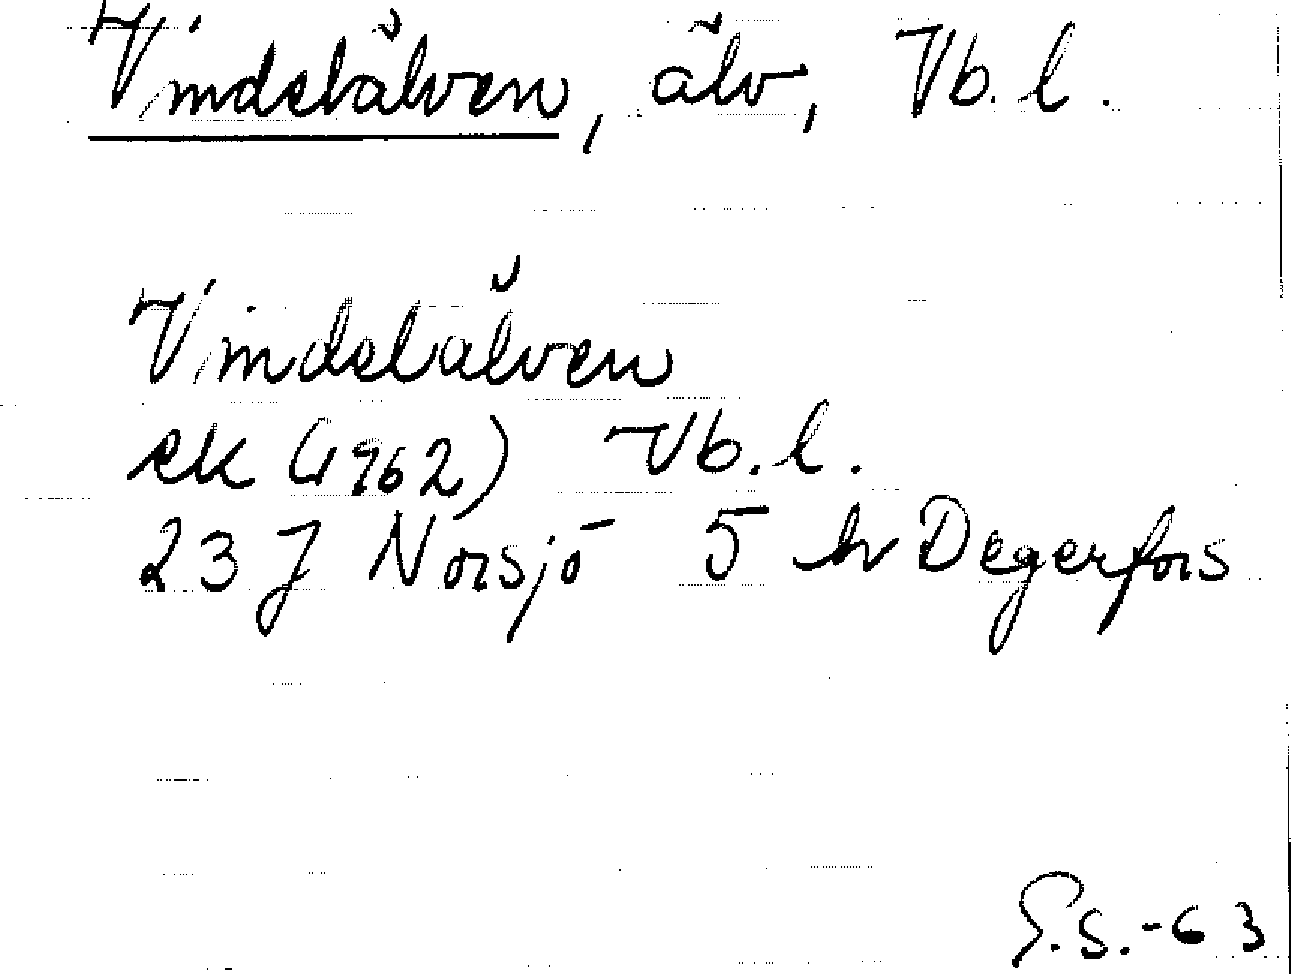 Vindelälven, älv, Vb. l.
Vindelälven
ek (1962) Vb. l.
23 J Norsjö 5 hv Degerfors
S.S.-63